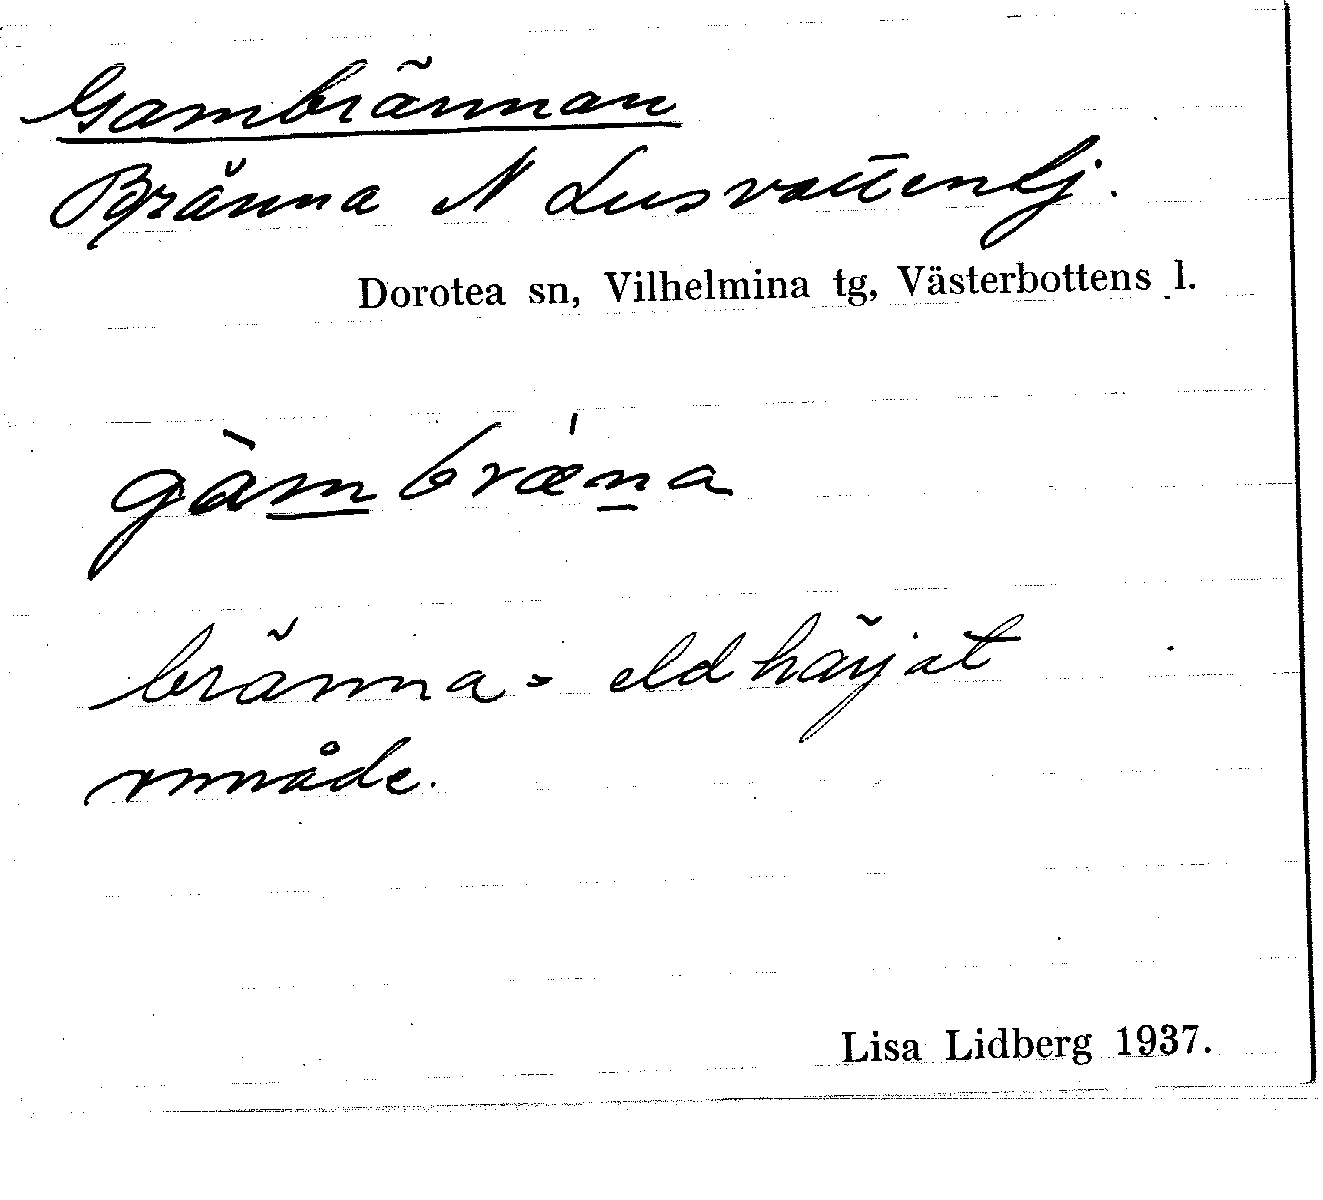 Gambrännan
Bränna N Lusvattentj.
Dorotea sn, Vilhelmina tg, Västerbottens l.
gàmbrǽna
bränna = eldhärjat
område.
Lisa Lidberg 1937.